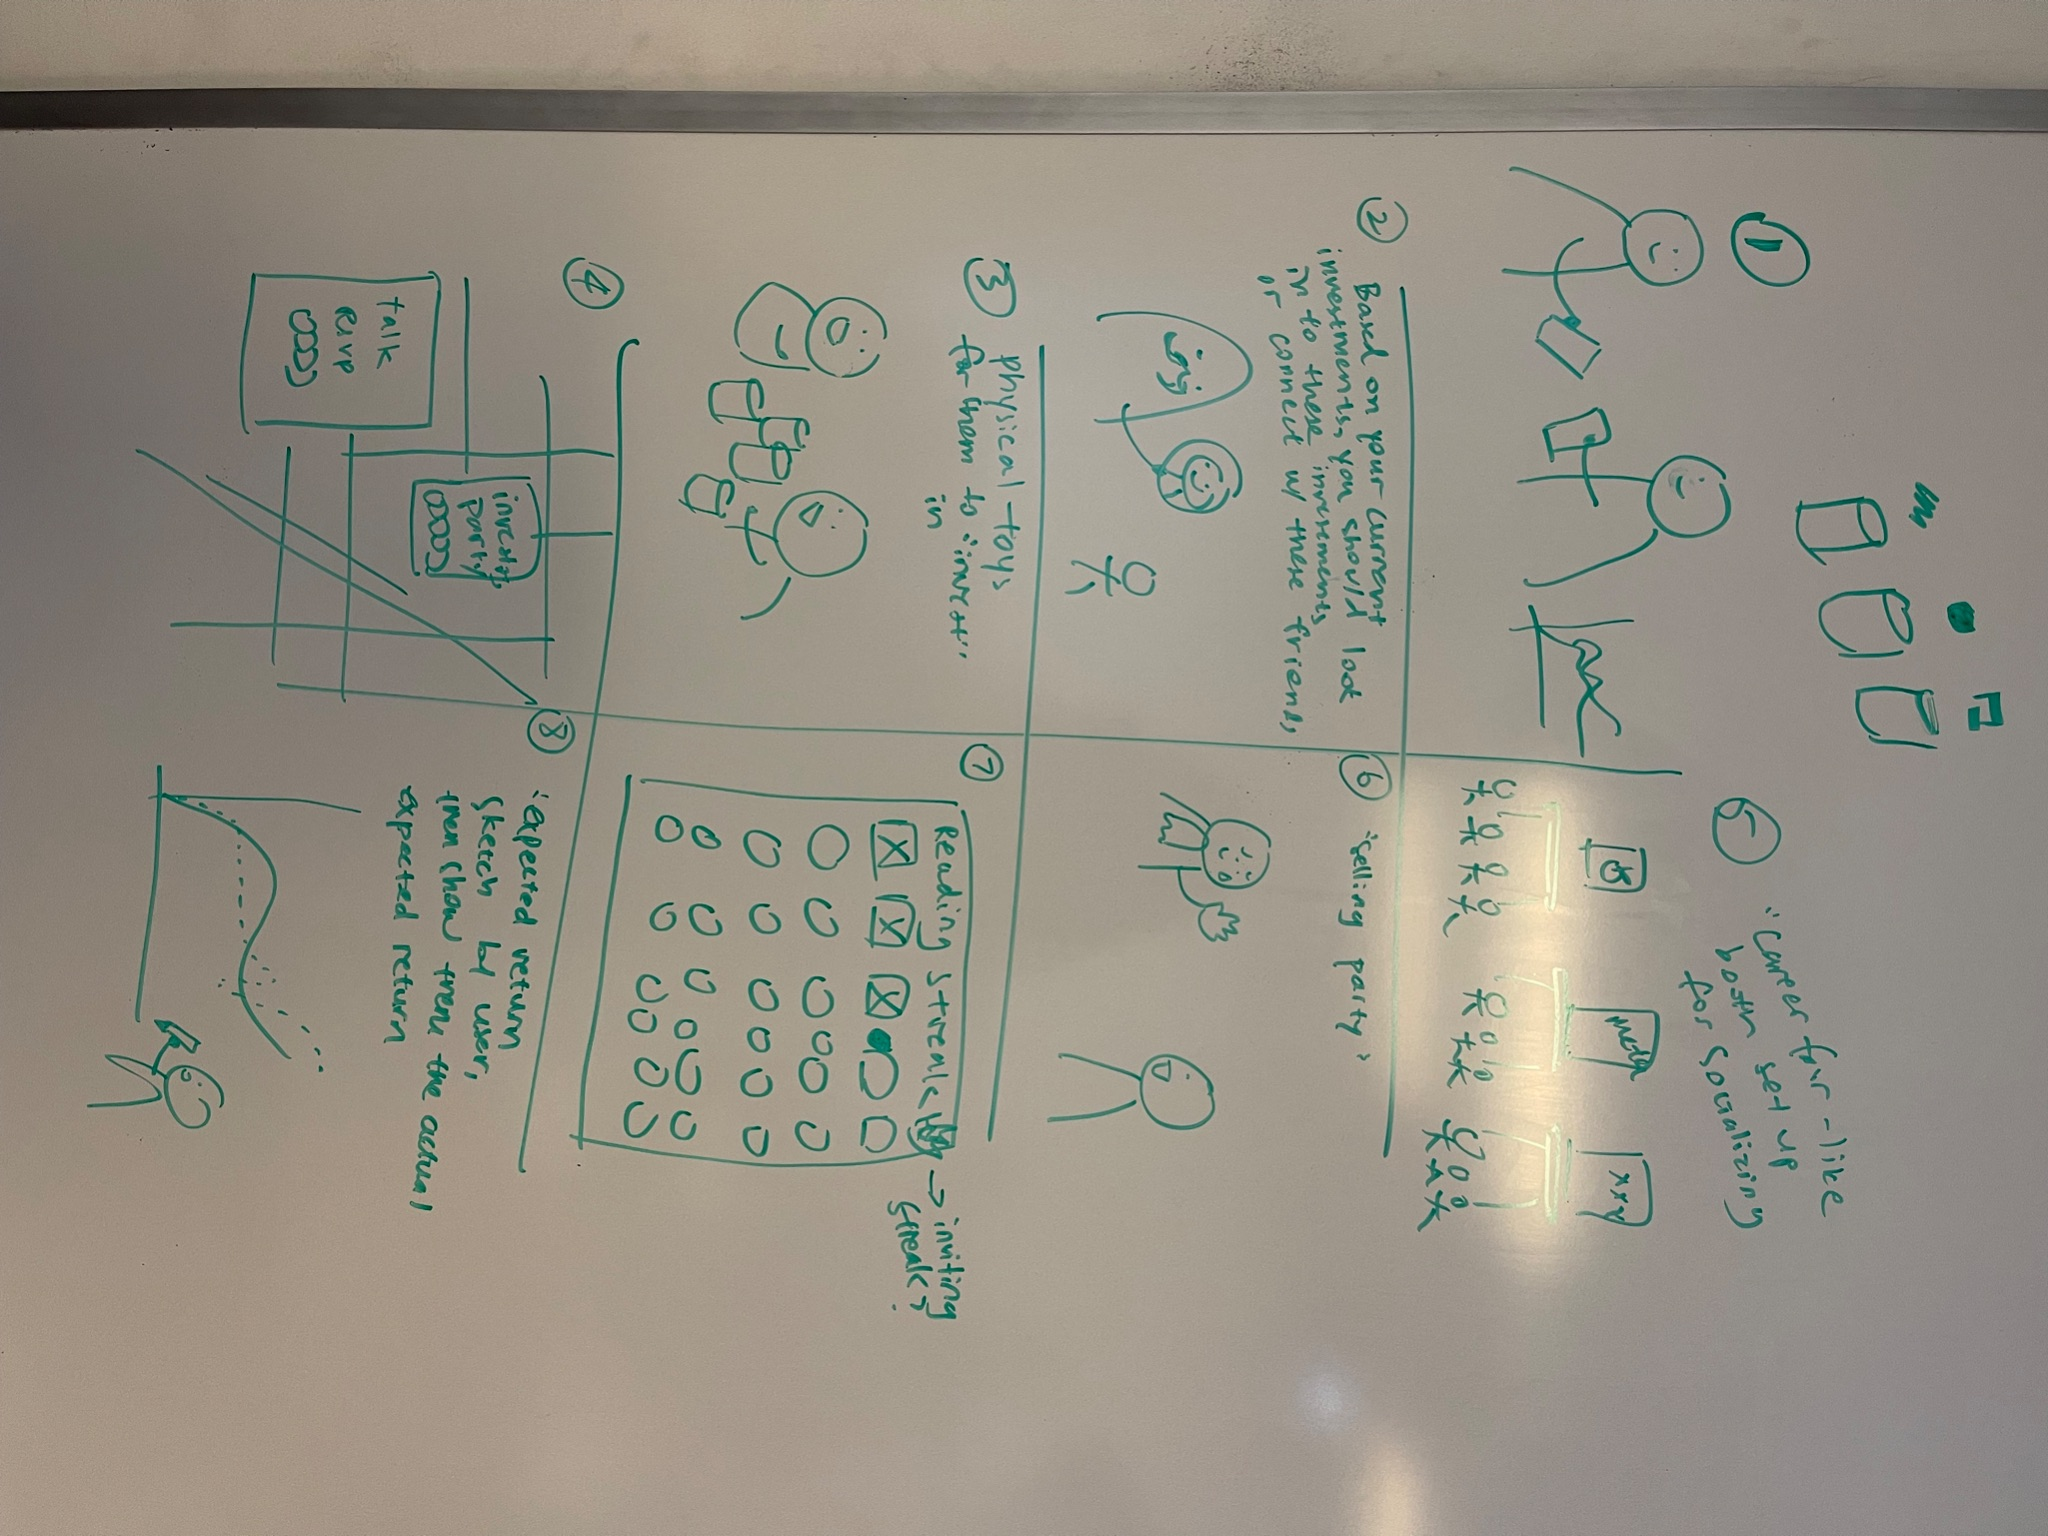 1
2
Based on your current
investments, you should look
in to these investments
or connect w/ these friends,
3
physical toys
for them to "invest"
in
4
talk
RSVP
invest
party
5
"career fair-like
booth set up
for socializing
meta
xxy
6
"selling party"
7
Reading streak
→ inviting
streak?
8
"expected return
sketch by user,
then show them the actual
expected return